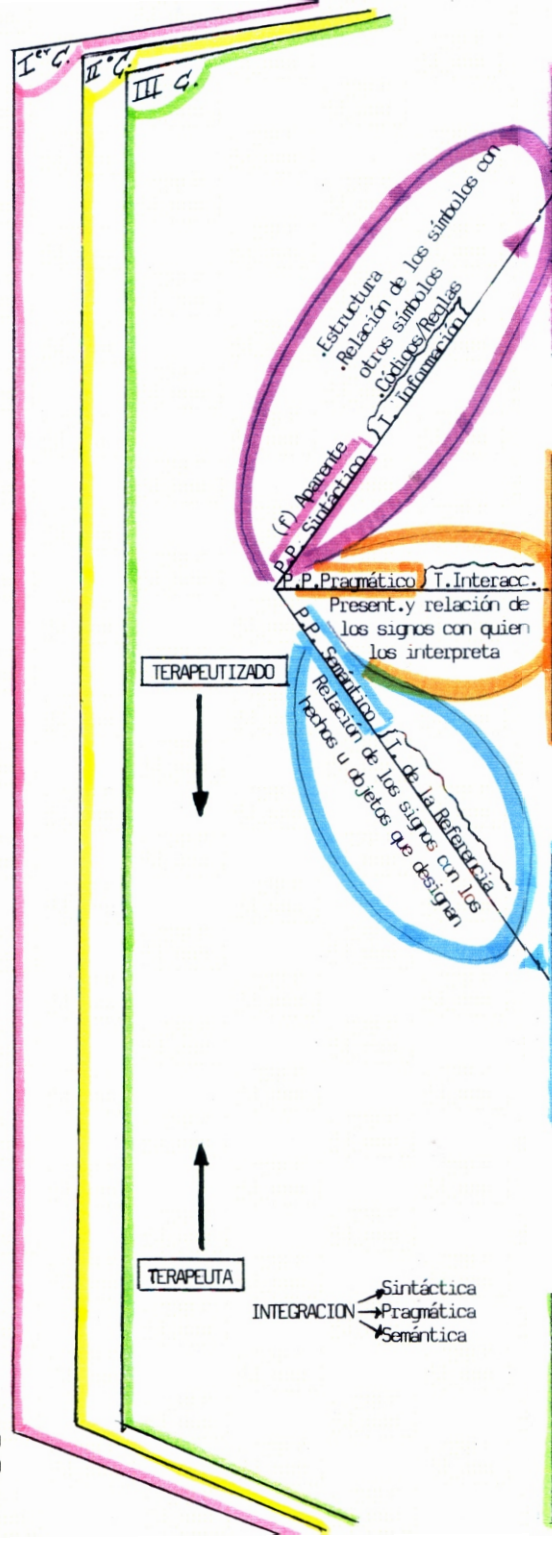 Iᵉʳ G.
IIº G.
III G.
.Estructura
.Relación de los símbolos con
otros símbolos
.Códigos/Reglas
(f) Aparente
P.P. Sintáctico
T. información
P.P.Pragmático
T.Interacc.
Present.y relación de
los signos con quien
los interpreta
P.P. Semántico
T. de la Referencia
Relación de los signos con los
hechos u objetos que designan
TERAPEUTIZADO
TERAPEUTA
INTEGRACION
Sintáctica
Pragmática
Semántica